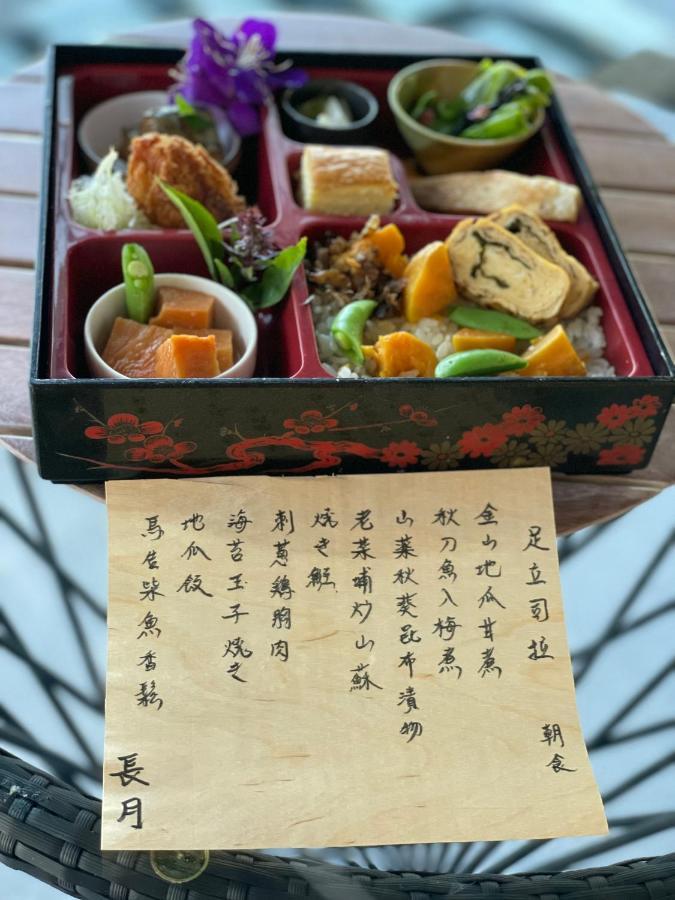 足立司拉 朝食
金山地瓜甘煮
秋刀魚入梅煮
山藥秋葵昆布漬物
老菜埔炒山蘇
焼き鮭
刺蔥鶏胸肉
海苔玉子焼き
地瓜飯
馬告柴魚香鬆
長月